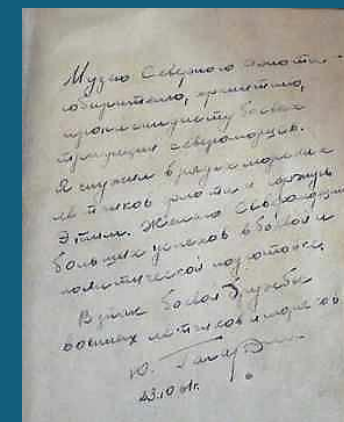 Музею Северного флота -
собирателю, хранителю,
пропагандисту боевых
традиций североморцев.
Я служил в рядах морских
летчиков флота и горжусь
этим. Желаю Североморцам
больших успехов в боевой и
политической подготовке
В знак боевой дружбы
военных летчиков и моряков
Ю. Гагарин
23.10